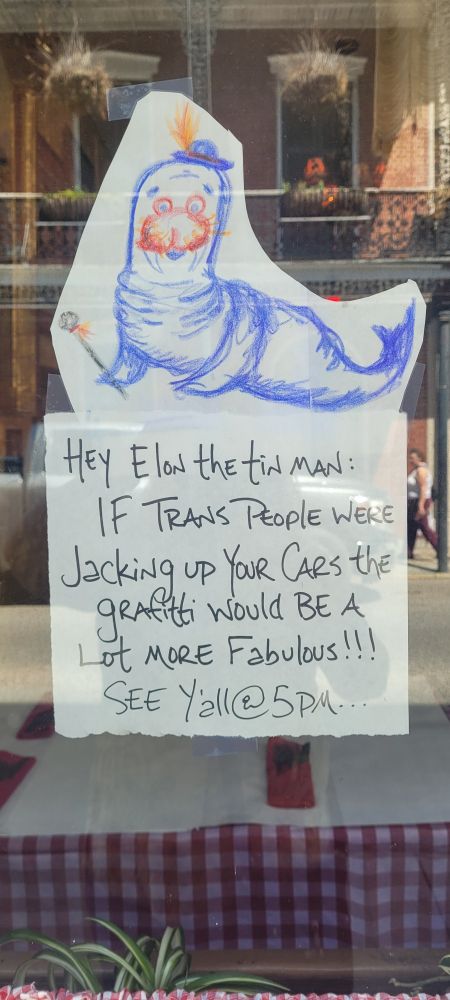 Hey Elon the tin man:
IF Trans People were
Jacking up Your Cars the
grafitti would Be A
Lot more Fabulous!!!
See Y'all@5PM...